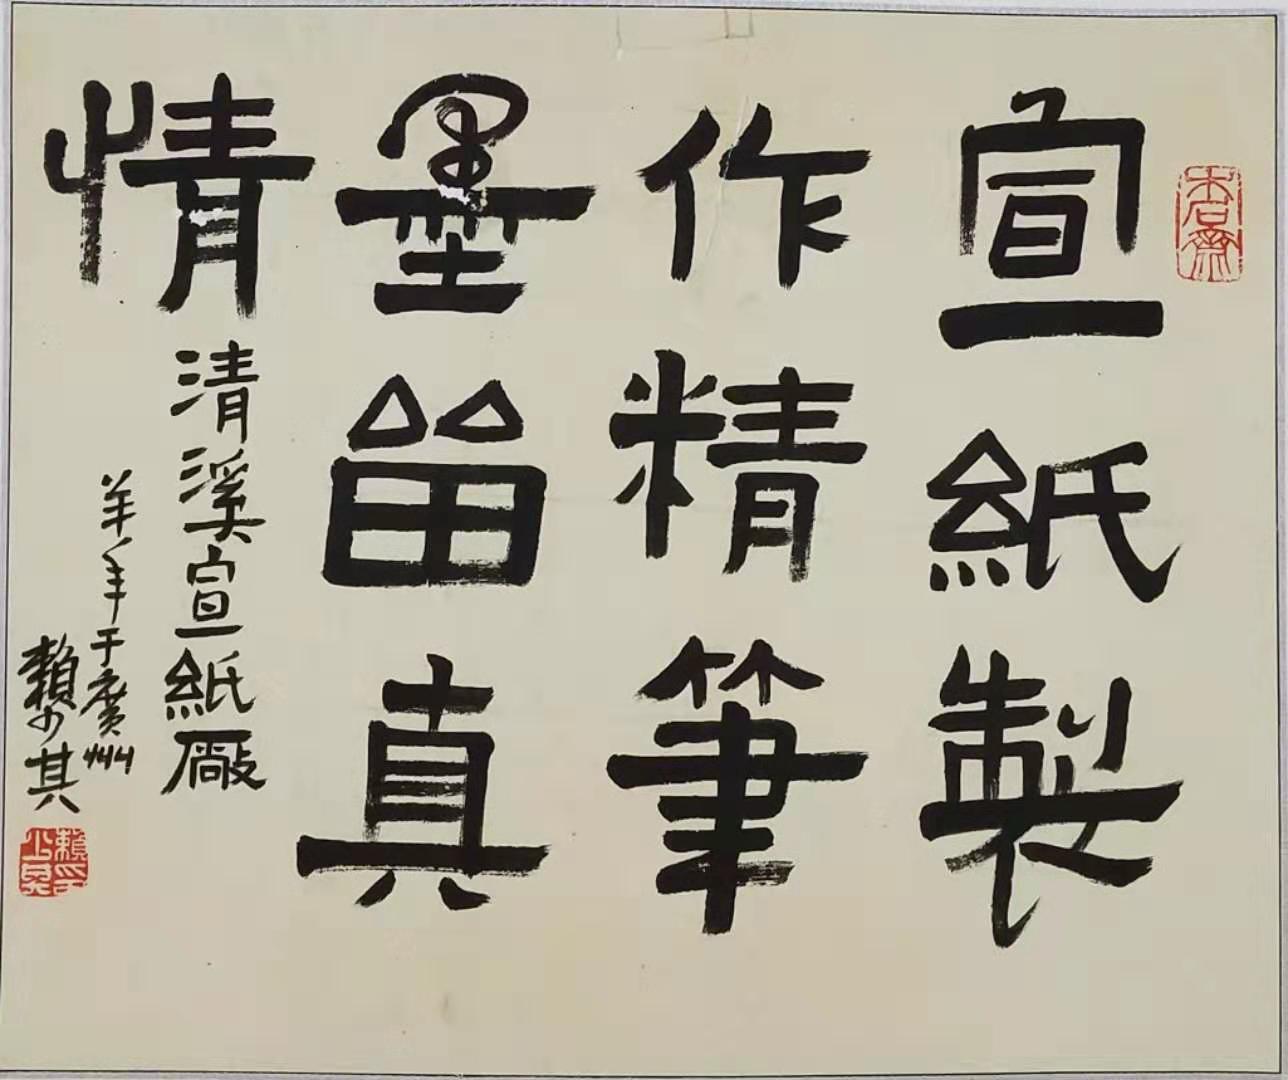 宣紙製
作精筆
墨畱真
情
清溪宣紙厰
羊年于廣州
賴少其